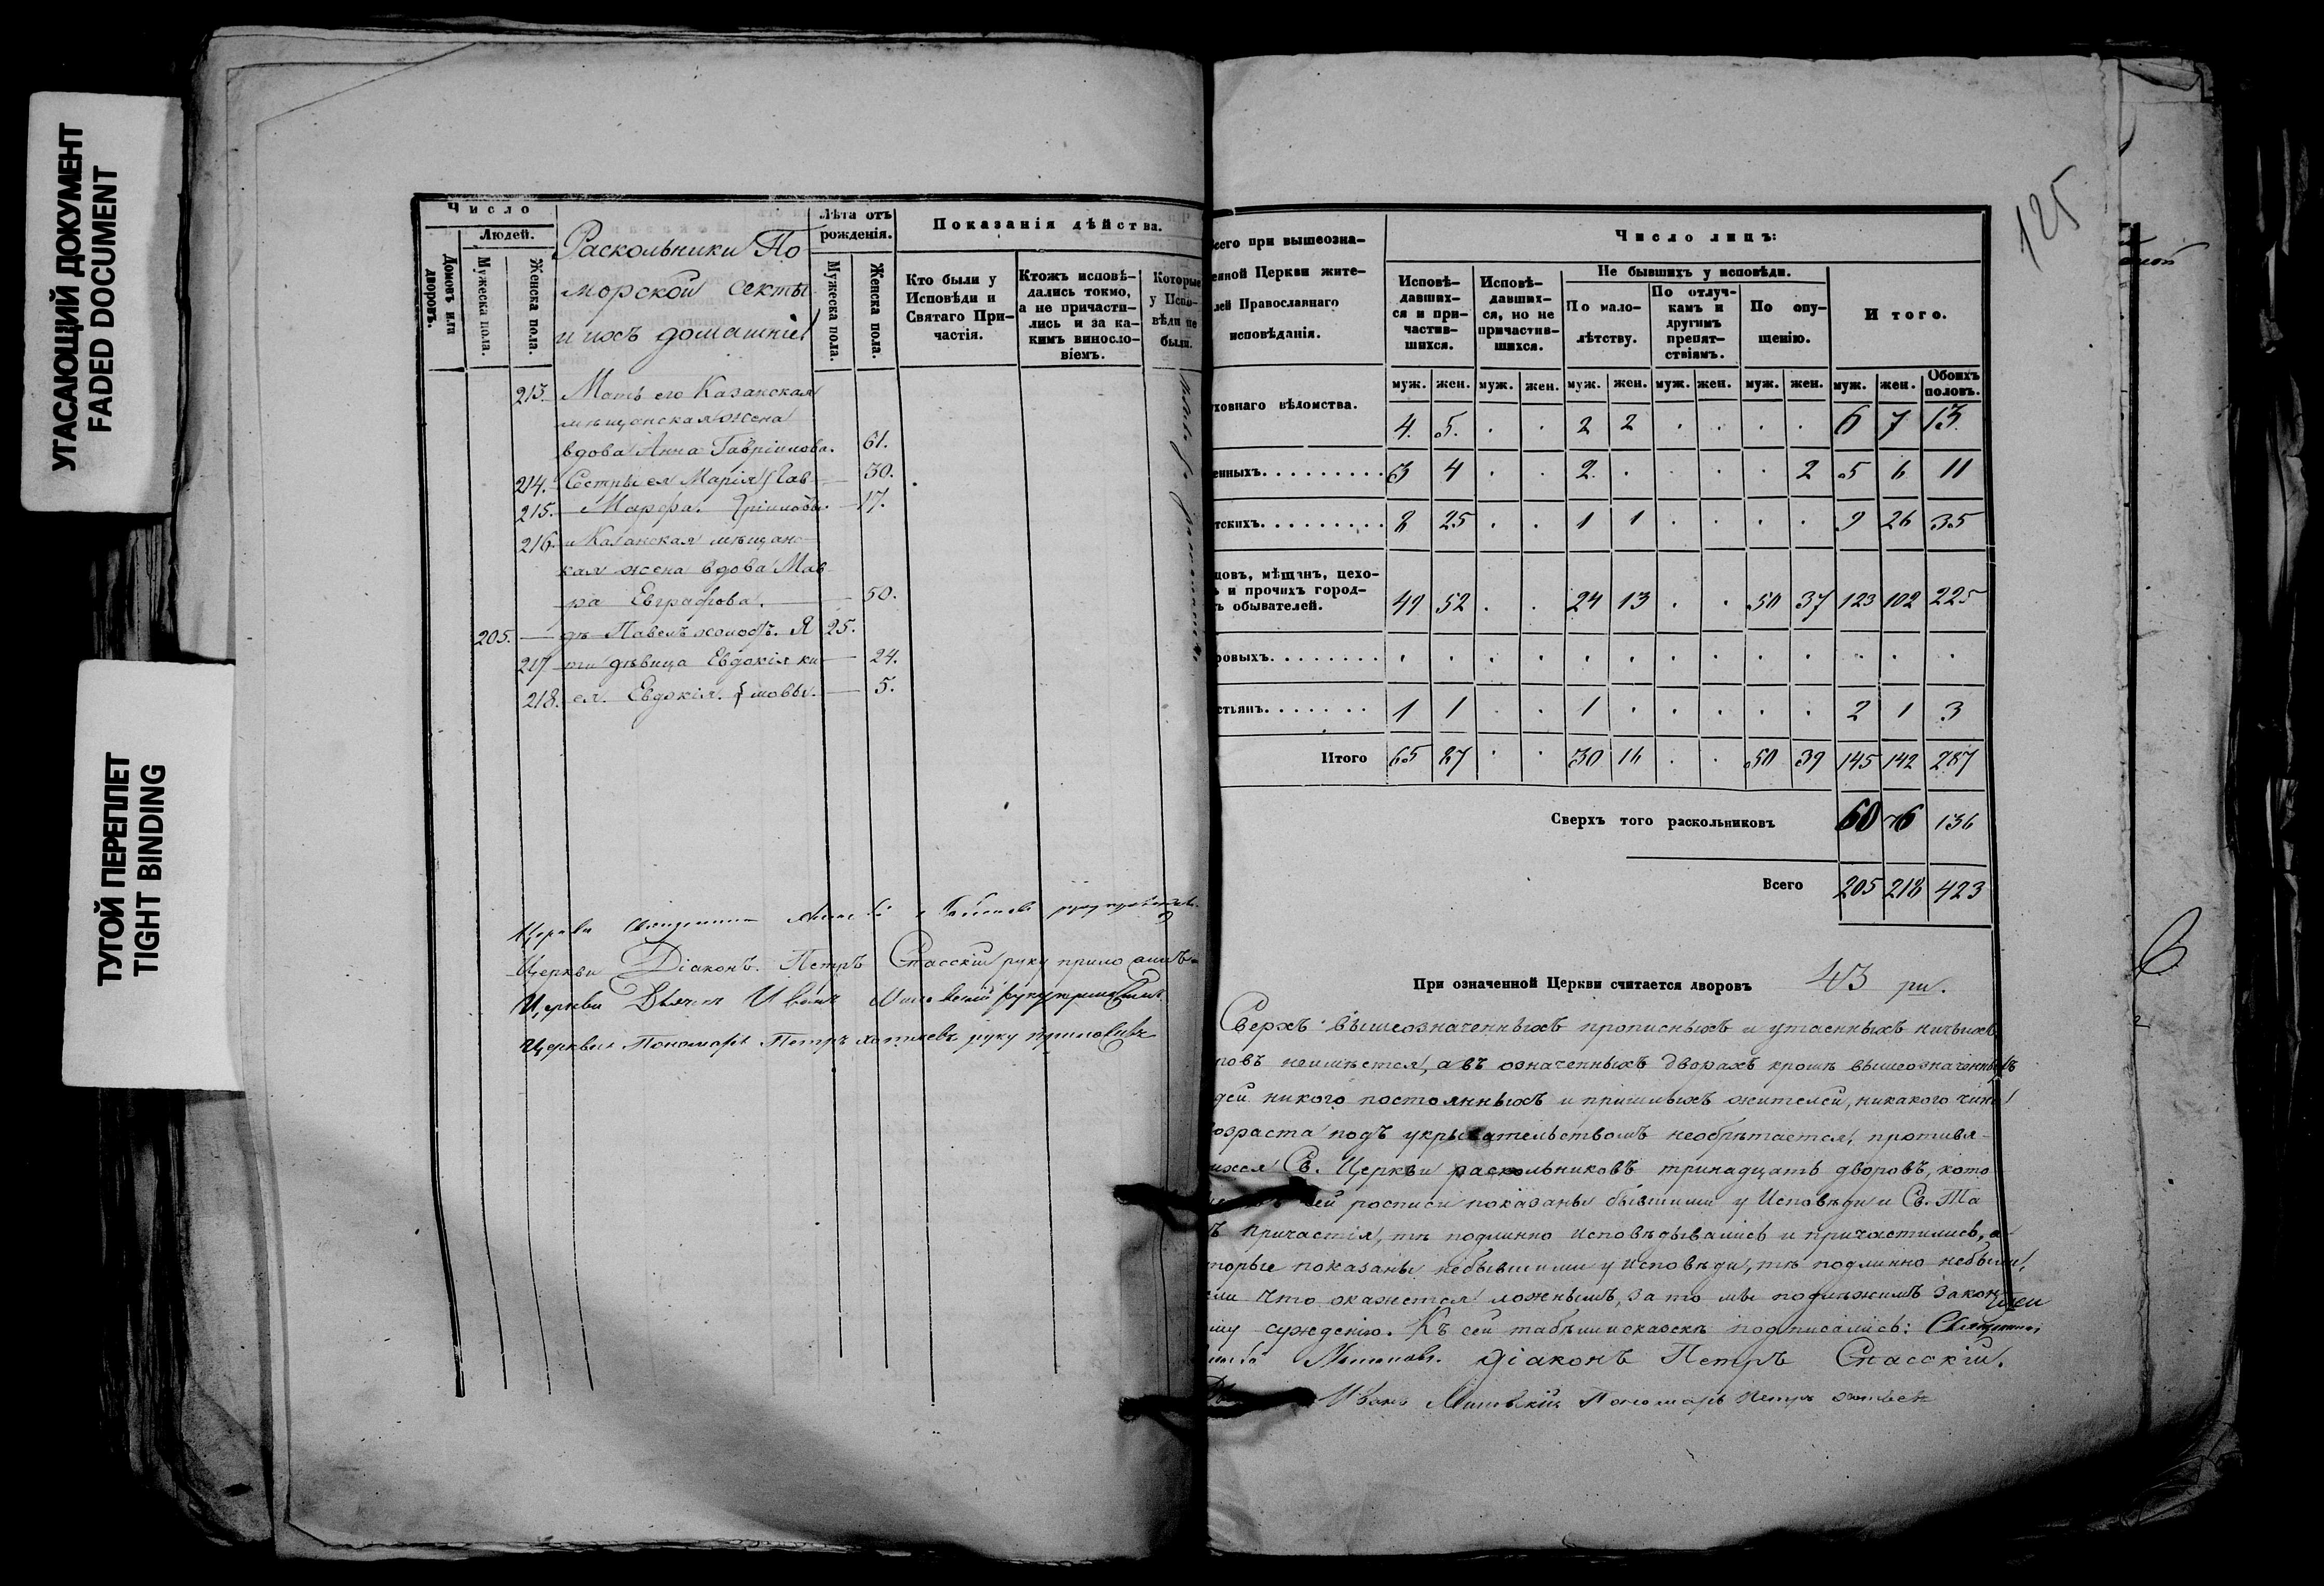 УГАСАЮЩИЙ ДОКУМЕНТ
FADED DOCUMENT
ТУГОЙ ПЕРЕПЛЕТ
TIGHT BINDING
Число
Людей.
Домовъ или дворовъ.
Мужеска пола.
Женска пола.
Раскольники По
морской секты
и ихъ домашніе
Лѣта отъ рожденія.
Мужеска пола.
Женска пола.
Показанія дѣйства.
Кто были у Исповѣди и Святаго При-частія.
Ктожъ исповѣ-дались токмо, а не причасти-лись и за ка-кимъ винословіемъ.
Которые у Испо-вѣди не были.
213. Мать его Казанская
мѣщанская жена
вдова Анна Гавріилова. 61.
214. Сестры ея Марія Гав 30.
215. Марфа. ріиловы. 17.
216. Казанская мѣщанс
кая жена вдова Мав
ра Евграфова. 50.
205. Павелъ 25.
217 дѣвица Евдокія 24.
218. ея Евдокія. 5.
Церкви
Церкви Діаконъ Петръ Спасскій руку приложилъ
Церкви Дьячекъ Иванъ руку приложилъ
Церкви Пономарь Петръ руку приложилъ
125
всего при вышеозна-
енной Церкви жите-
лей Православнаго
исповѣданія.
Число лицъ:
Исповѣ-давших-ся и при-частив-шихся.
Исповѣ-давших-ся, но не причастив-шихся.
Не бывшихъ у исповѣди.
По мало-лѣтству.
По отлуч-камъ и другимъ препят-ствіямъ.
По опу-щенію.
Итого.
муж. жен. муж. жен. муж. жен. муж. жен. муж. жен. муж. жен. Обоихъ половъ.
уховнаго вѣдомства. 4. 5. . . 2 2 . . . . 6 7 13.
енныхъ. 3 4 . . 2. . . . . 2 5 6 11
тскихъ. 8 25 . . 1 1 . . . . 9 26 35
цовъ, мѣщанъ, цехо-
и прочихъ город-
ъ обывателей. 49 52 . . 24 13 . . 50 37 123 102 225
ровыхъ. . . . . . . . . . . . . .
стьянъ. 1 1 . . 1 . . . . . 2 1 3
Итого 65 87 . . 30 16 . . 50 39 145 142 287
Сверхъ того раскольниковъ 60 76 136
Всего 205 218 423
При означенной Церкви считается дворовъ 43
Сверхъ вышеозначенныхъ прописныхъ и утаенныхъ ничьихъ
ровъ неимѣется, а въ означенныхъ дворахъ кромѣ вышеозначенныхъ
дей никого постоянныхъ и пришлыхъ жителей, никакого чина
возраста подъ укрывательствомъ необрѣтается, противя-
щихся Св. Церкви раскольниковъ тринадцать дворовъ, кото
сей росписи показаны бывшими у Исповѣди и Св. Та
ъ причастія, тѣ подлинно исповѣдывались и причастились, а
торые показаны небывшими у исповѣди, тѣ подлинно небыли,
ли что окажется ложнымъ, за то мы подлежимъ закон
му сужденію. Къ сей подписались: Священникъ
Діаконъ Петръ Спасскій.
Иванъ Пономарь Петръ